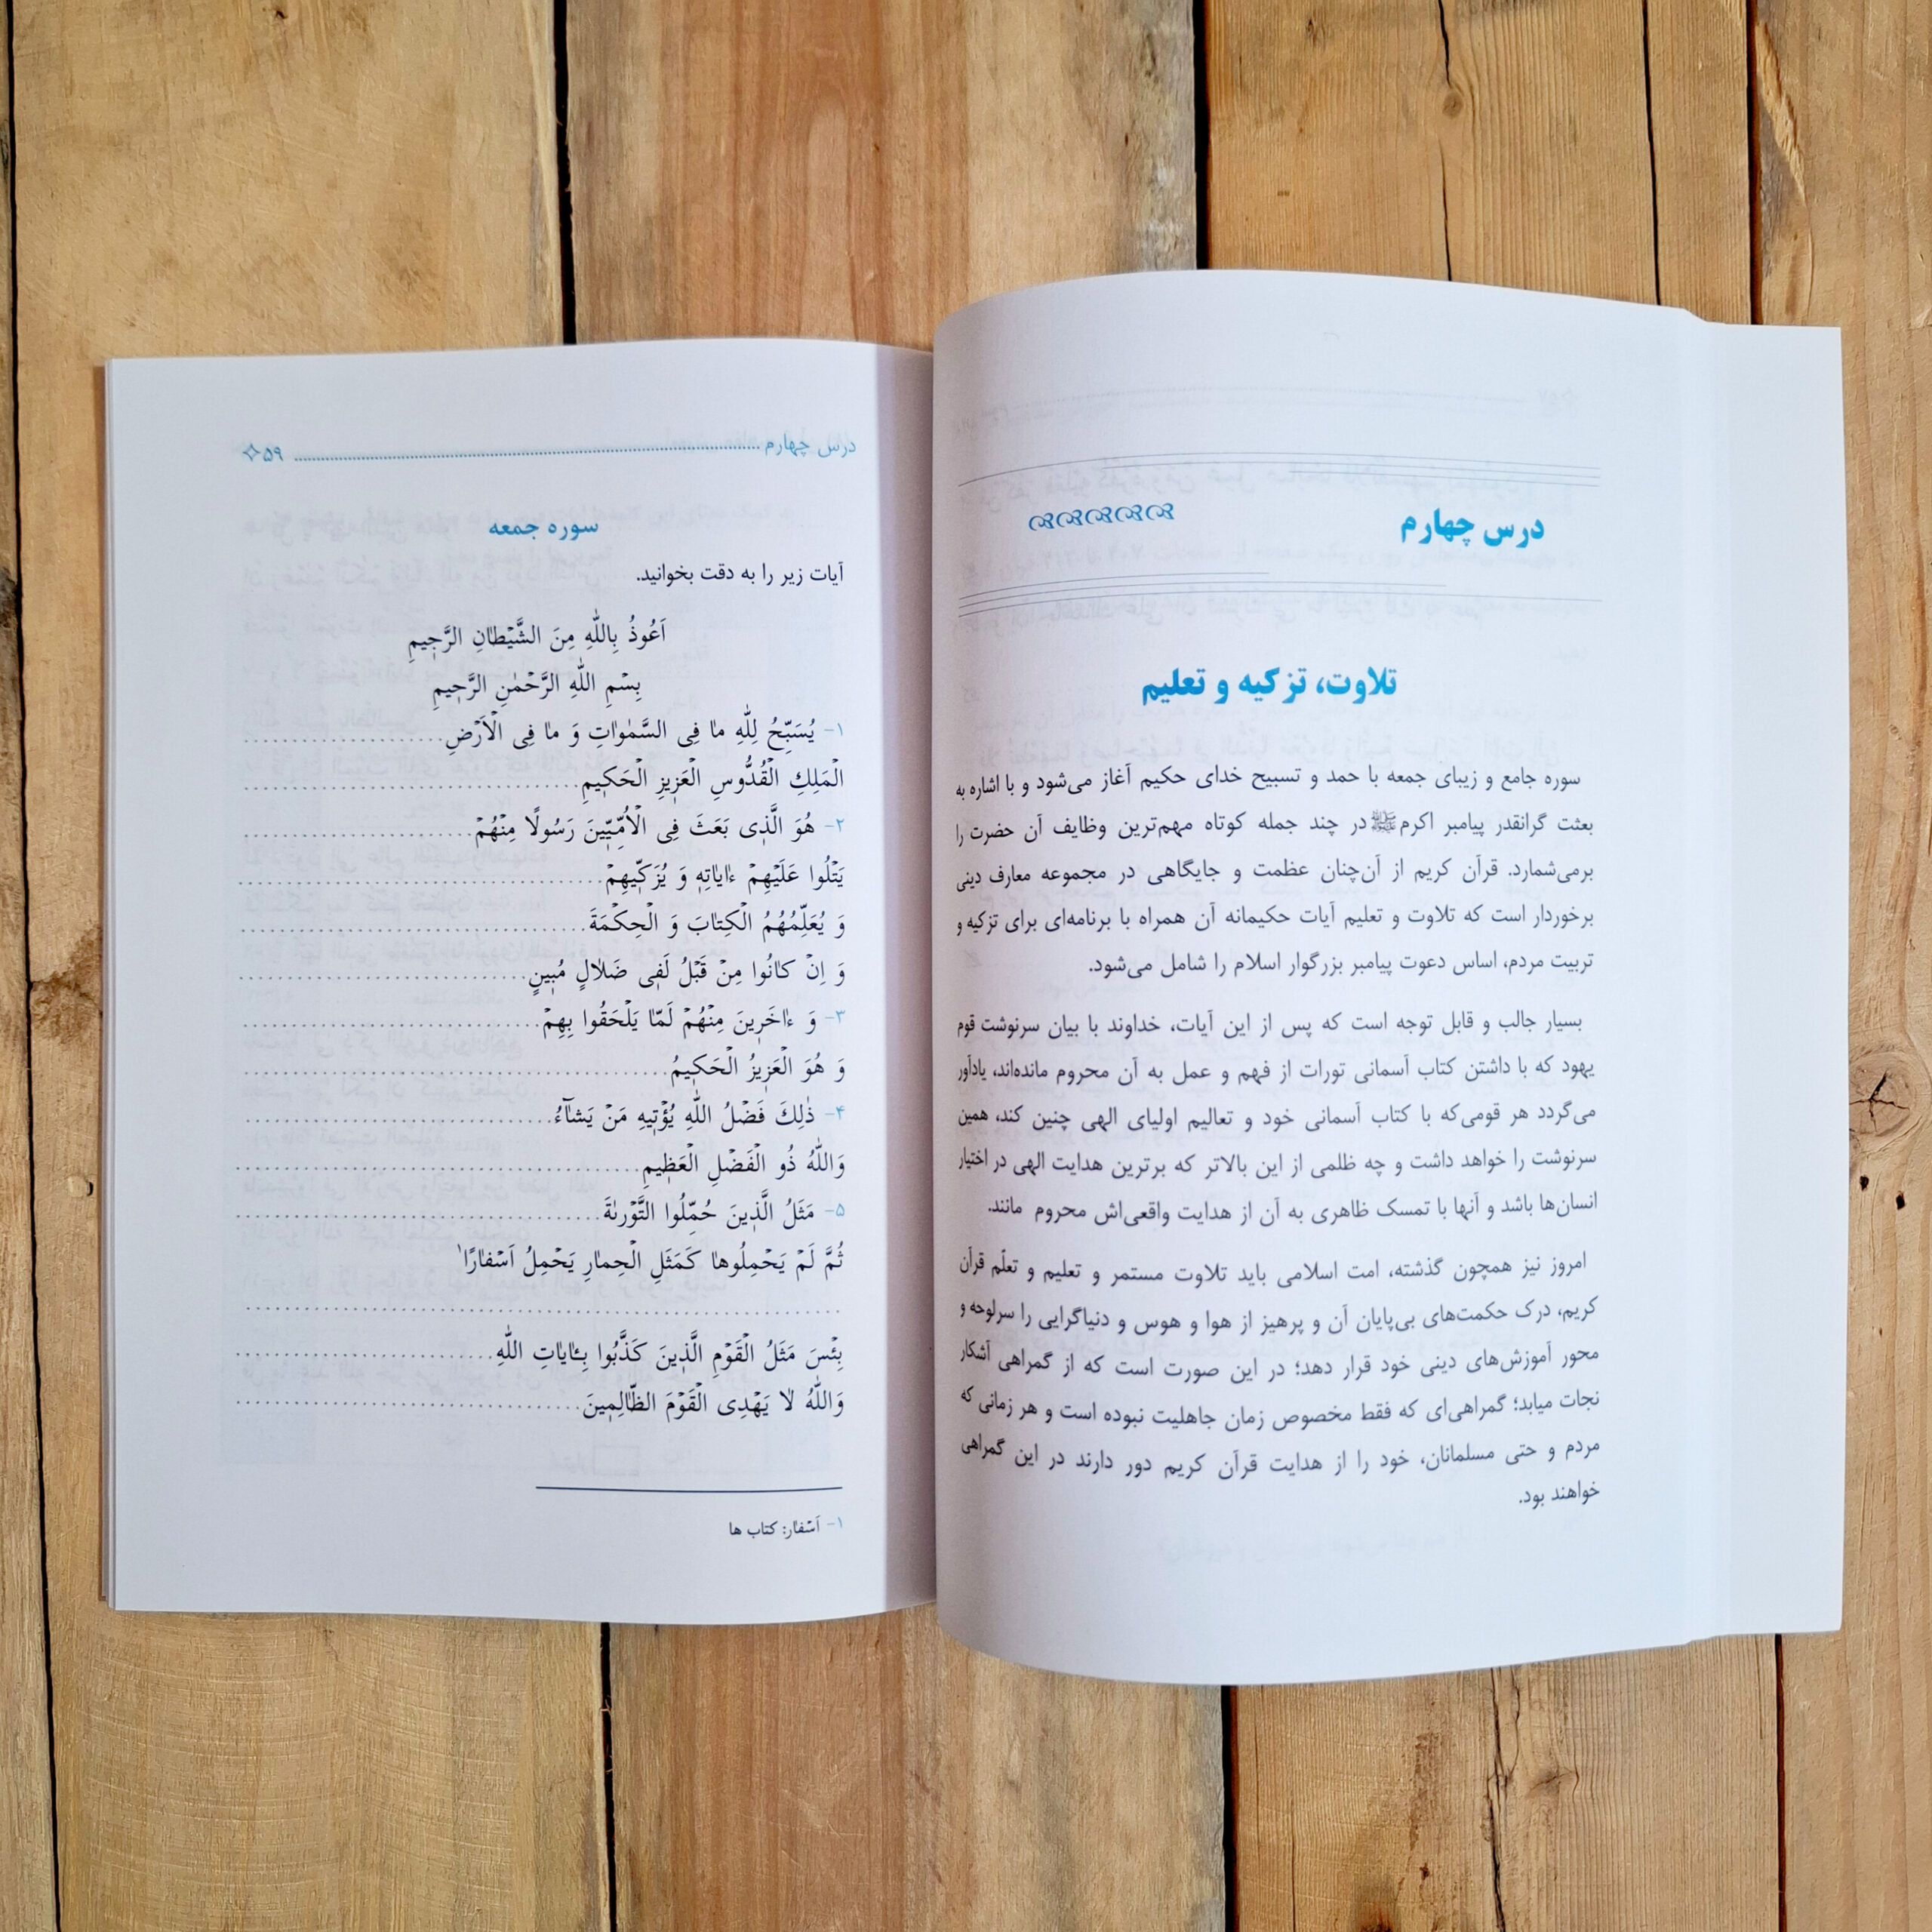 درس چهارم
تلاوت، تزکیه و تعلیم
سوره جامع و زیبای جمعه با حمد و تسبیح خدای حکیم آغاز می‌شود و با اشاره به
بعثت گرانقدر پیامبر اکرم ﷺ در چند جمله کوتاه مهم‌ترین وظایف آن حضرت را
برمی‌شمارد. قرآن کریم از آن‌چنان عظمت و جایگاهی در مجموعه معارف دینی
برخوردار است که تلاوت و تعلیم آیات حکیمانه آن همراه با برنامه‌ای برای تزکیه و
تربیت مردم، اساس دعوت پیامبر بزرگوار اسلام را شامل می‌شود.
بسیار جالب و قابل توجه است که پس از این آیات، خداوند با بیان سرنوشت قوم
یهود که با داشتن کتاب آسمانی تورات از فهم و عمل به آن محروم مانده‌اند، یادآور
می‌گردد هر قومی‌که با کتاب آسمانی خود و تعالیم اولیای الهی چنین کند، همین
سرنوشت را خواهد داشت و چه ظلمی از این بالاتر که برترین هدایت الهی در اختیار
انسان‌ها باشد و آنها با تمسک ظاهری به آن از هدایت واقعی‌اش محروم مانند.
امروز نیز همچون گذشته، امت اسلامی باید تلاوت مستمر و تعلیم و تعلّم قرآن
کریم، درک حکمت‌های بی‌پایان آن و پرهیز از هوا و هوس و دنیاگرایی را سرلوحه و
محور آموزش‌های دینی خود قرار دهد؛ در این صورت است که از گمراهی آشکار
نجات میابد؛ گمراهی‌ای که فقط مخصوص زمان جاهلیت نبوده است و هر زمانی که
مردم و حتی مسلمانان، خود را از هدایت قرآن کریم دور دارند در این گمراهی
خواهند بود.
درس چهارم ........ ۵۹
سوره جمعه
آیات زیر را به دقت بخوانید.
اَعُوذُ بِاللّٰهِ مِنَ الشَّیْطانِ الرَّجیمِ
بِسْمِ اللّٰهِ الرَّحْمٰنِ الرَّحیمِ
۱- یُسَبِّحُ لِلّٰهِ ما فِی السَّمٰواتِ وَ ما فِی الْاَرْضِ ........
الْمَلِکِ الْقُدُّوسِ الْعَزیزِ الْحَکیمِ ........
۲- هُوَ الَّذی بَعَثَ فِی الْاُمِّیّینَ رَسُولًا مِنْهُمْ ........
یَتْلُوا عَلَیْهِمْ ءایاتِهٖ وَ یُزَکّیهِمْ ........
وَ یُعَلِّمُهُمُ الْکِتابَ وَ الْحِکْمَةَ ........
وَ اِنْ کانُوا مِنْ قَبْلُ لَفی ضَلالٍ مُبینٍ ........
۳- وَ ءاخَرینَ مِنْهُمْ لَمّا یَلْحَقُوا بِهِمْ ........
وَ هُوَ الْعَزیزُ الْحَکیمُ ........
۴- ذٰلِکَ فَضْلُ اللّٰهِ یُؤْتیهِ مَنْ یَشآءُ ........
وَاللّٰهُ ذُو الْفَضْلِ الْعَظیمِ ........
۵- مَثَلُ الَّذینَ حُمِّلُوا التَّوْرىٰةَ ........
ثُمَّ لَمْ یَحْمِلُوها کَمَثَلِ الْحِمارِ یَحْمِلُ اَسْفارًا۱
........
بِئْسَ مَثَلُ الْقَوْمِ الَّذینَ کَذَّبُوا بِـٔایاتِ اللّٰهِ ........
وَاللّٰهُ لا یَهْدِی الْقَوْمَ الظّالِمینَ ........
۱- اَسْفار: کتاب ها